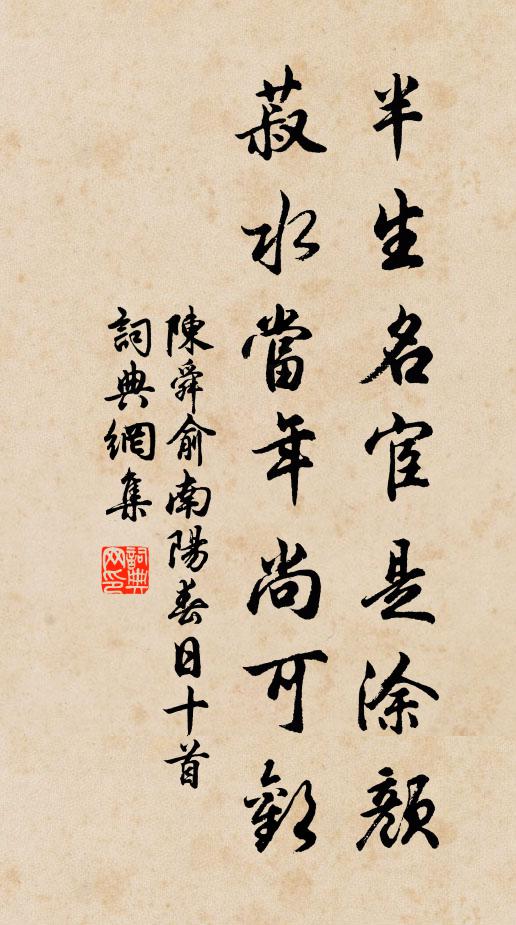 半生名宦是涂顏
菽水當年尚可歡
陳舜俞南陽春日十首
詞典網集
詞典网印